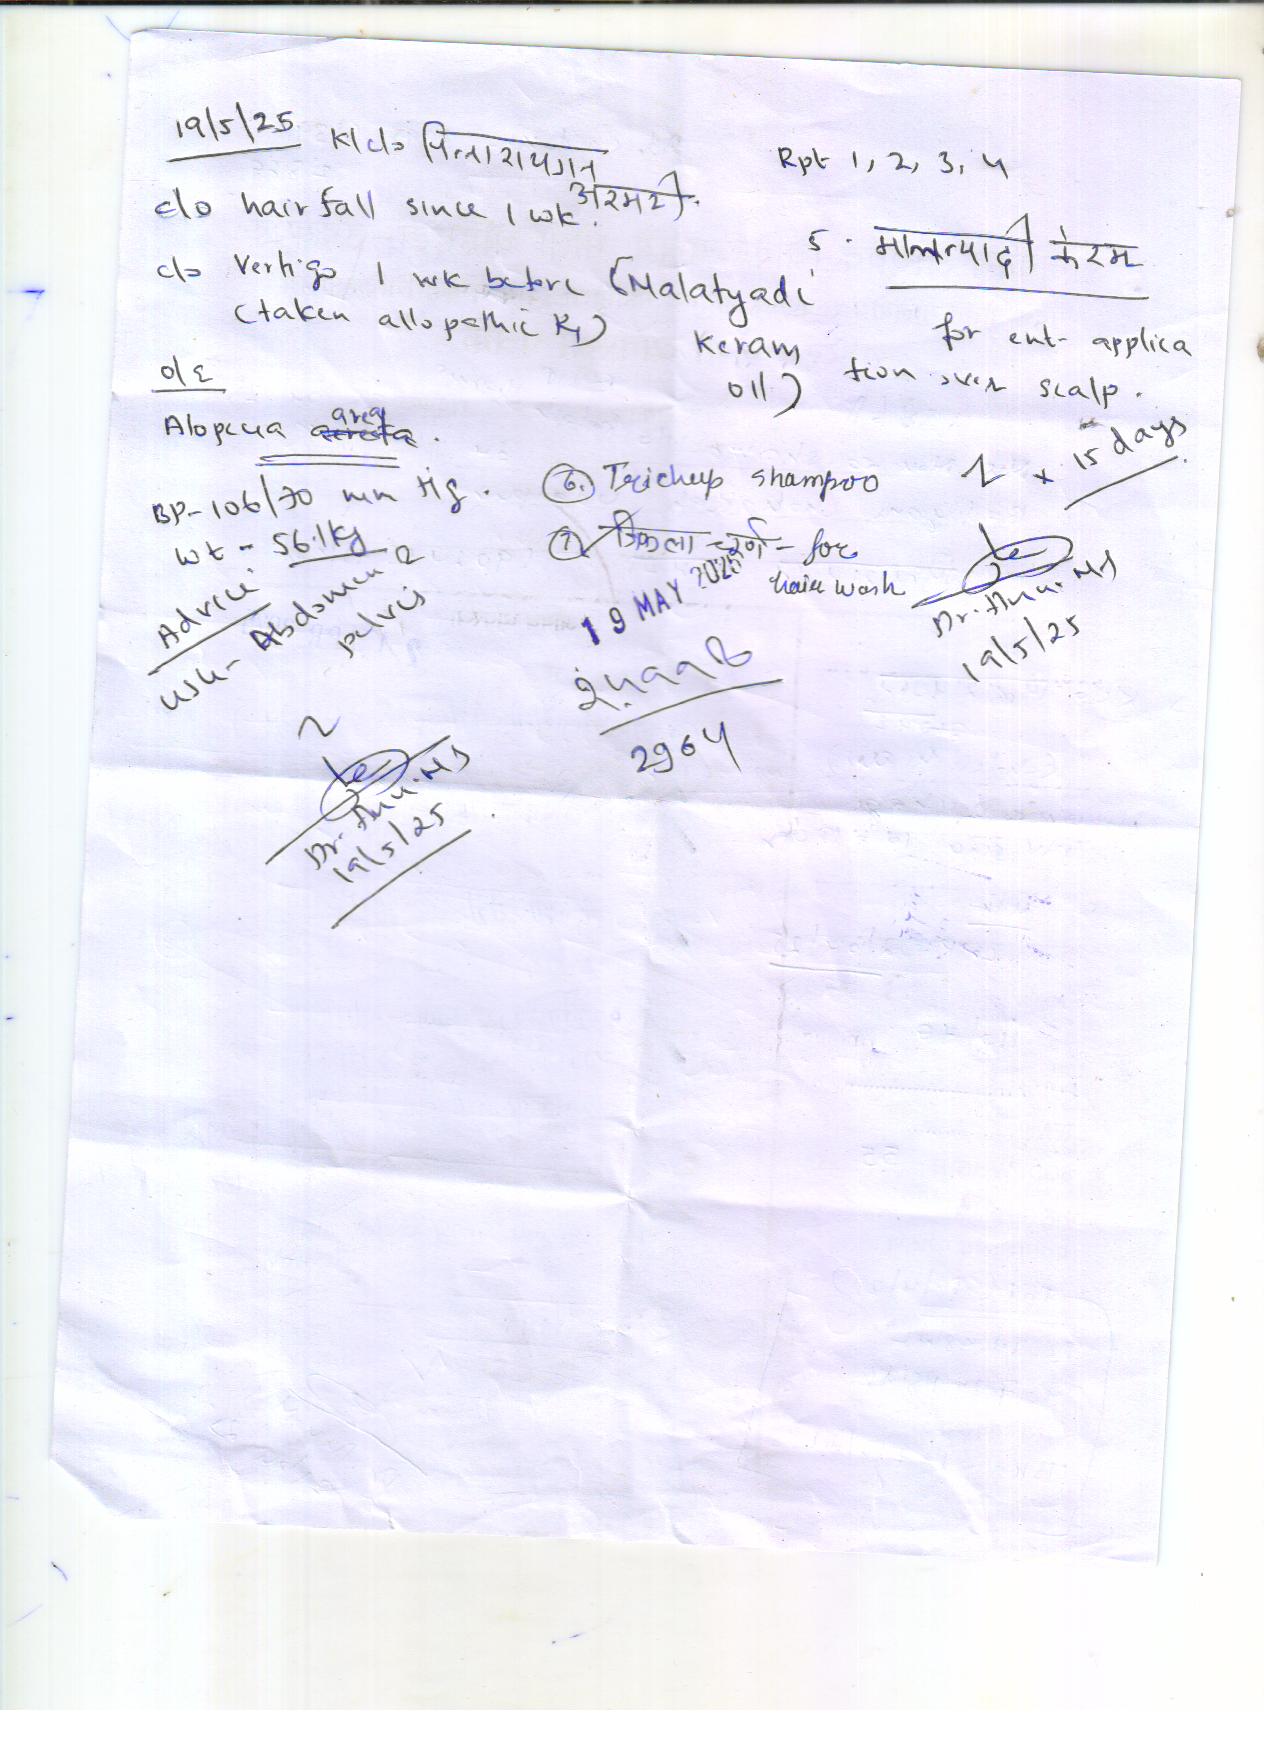 19/5/25
K/c/o पित्ताशयगत अश्मरी.
c/o hair fall since 1 wk.
c/o Vertigo 1 wk before
(taken allopathic Rx)
O/E
Alopecia area
BP- 106/70 mm Hg.
wt - 56.1kg
Advice
USG- Abdomen
pelvis
Dr. Anu. M S
19/5/25
Rpt 1, 2, 3, 4
5. मालत्यादी केरम
(Malatyadi
Keram
oil)
for ext- applica
tion over scalp.
x 15 days
6. Trichup shampoo
7. त्रिफला चूर्ण - for
hair wash
19 MAY 2025
Dr. Anu. M S
19/5/25
2964